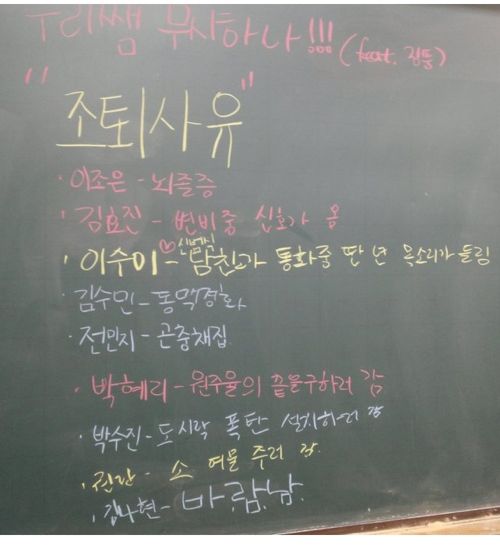 우리쌤 무사하나!!! (feat. 김뚱)
"조퇴사유"
· 이조은 - 뇌졸증
· 김효진 - 변비중 신호가 옹
· 이수이 ♡ - 남친과 통화중 딴 년 목소리가 들림
· 김수민 - 동맥경화
· 전민지 - 곤충채집
· 박혜리 - 원주율의 끝을구하러 감
· 박수진 - 도시락 폭탄 설치하러 감
· 소 여물 주러 감
· 김나현 - 바.람.남.